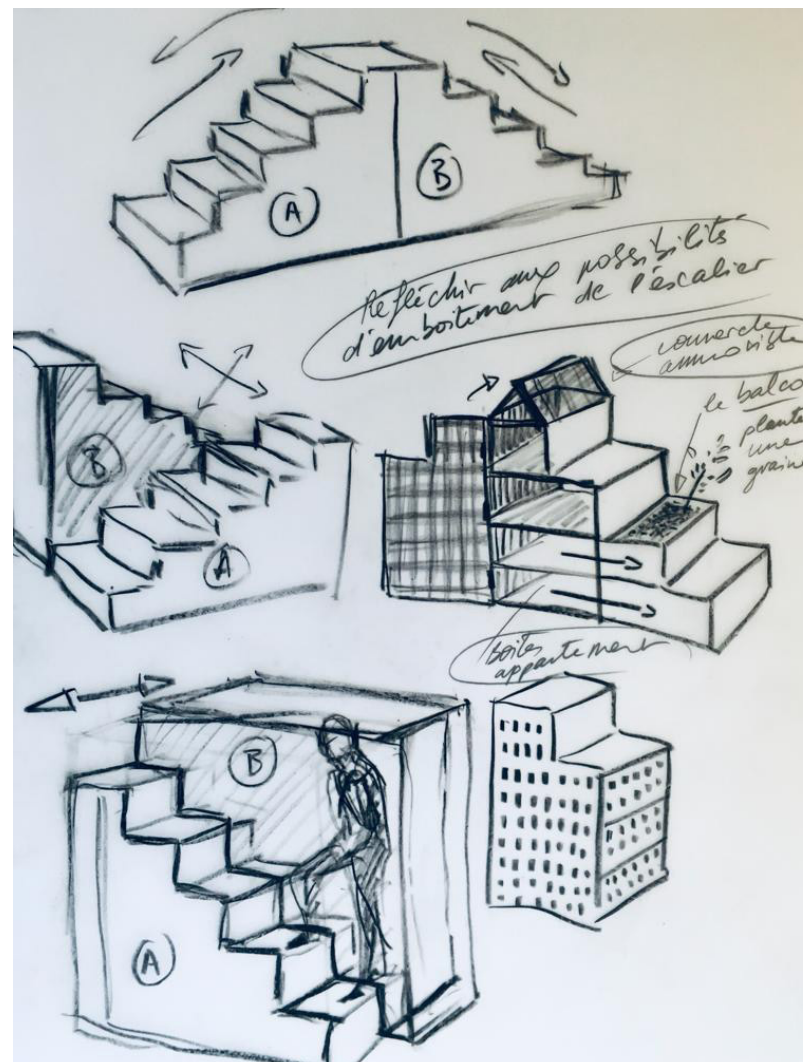 A
B
Réfléchir aux possibilités
d'emboitement de l'éscalier
B
A
le balco
plante
une
graine
boites
appartement
B
A